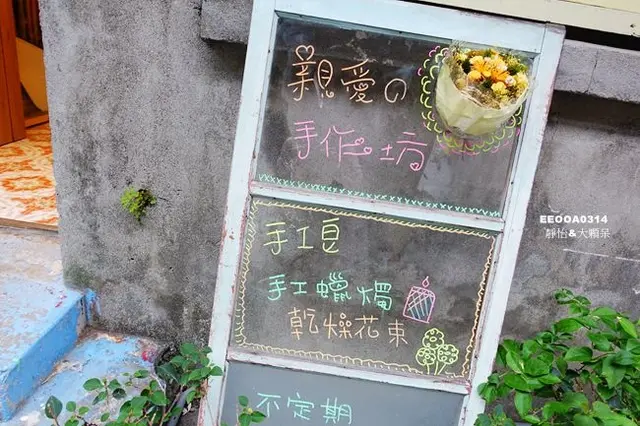 親愛の
手作坊
手工皂
手工蠟燭
乾燥花束
不定期
EEOOA0314
靜怡&大顆呆